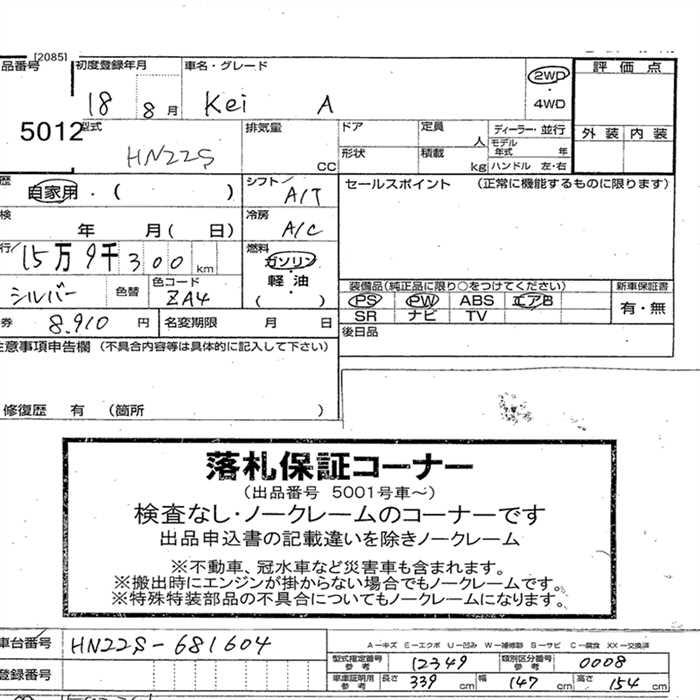 [2085]
品番号 初度登録年月 車名・グレード 評価点
18 8月 Kei A 2WD
・
4WD
5012 型式 排気量 ドア 定員 ディーラー・並行 外装 内装
HN22S CC 形状 人 モデル年式 年
積載 kg ハンドル 左・右
歴 自家用・( ) シフト A/T セールスポイント (正常に機能するものに限ります)
検 年 月( 日) 冷房 A/C
行 15万9千300km 燃料 ガソリン
軽・油
( )
シルバー 色替 色コード ZA4 装備品(純正品に限り○をつけてください) 新車保証書
PS PW ABS エアB 有・無
券 8.910円 名変期限 月 日 SR ナビ TV
後日品
注意事項申告欄 (不具合内容等は具体的に記入して下さい)
修復歴 有 (箇所 )
落札保証コーナー
(出品番号 5001号車~)
検査なし・ノークレームのコーナーです
出品申込書の記載違いを除きノークレーム
※不動車、冠水車など災害車も含まれます。
※搬出時にエンジンが掛からない場合でもノークレームです。
※特殊特装部品の不具合についてもノークレームになります。
車台番号 HN22S-681604 A−キズ E−エクボ U−凹み W−補修跡 S−サビ C−腐食 XX−交換済
型式指定番号 参考 12349 類別区分番号 参考 0008
登録番号 車庫証明用 参考 長さ 339cm 幅 147cm 高さ 154cm